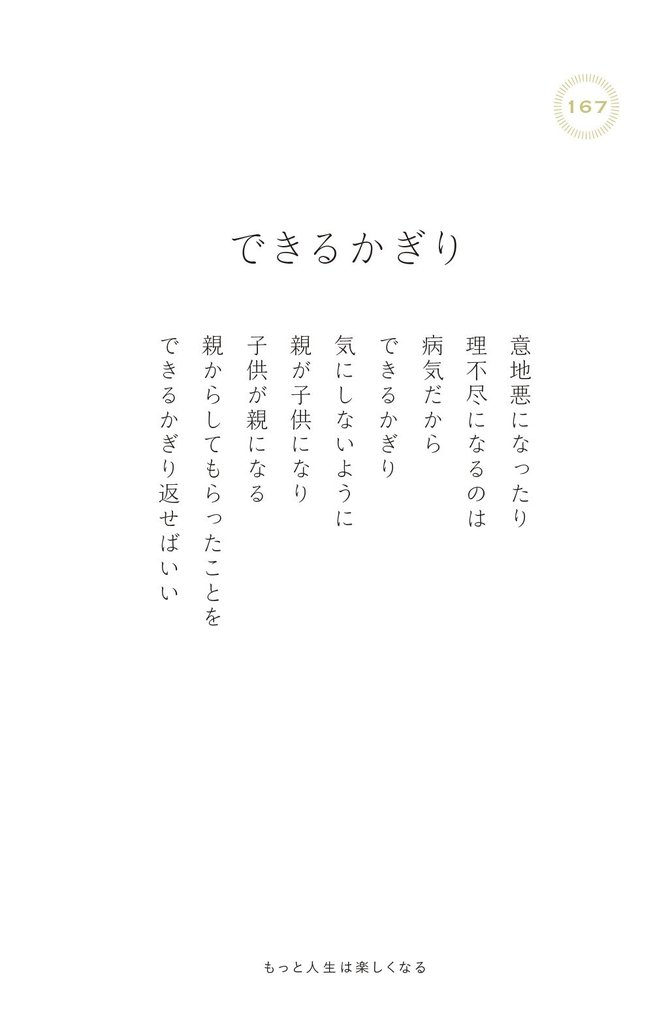 167
できるかぎり
意地悪になったり
理不尽になるのは
病気だから
できるかぎり
気にしないように
親が子供になり
子供が親になる
親からしてもらったことを
できるかぎり返せばいい
もっと人生は楽しくなる